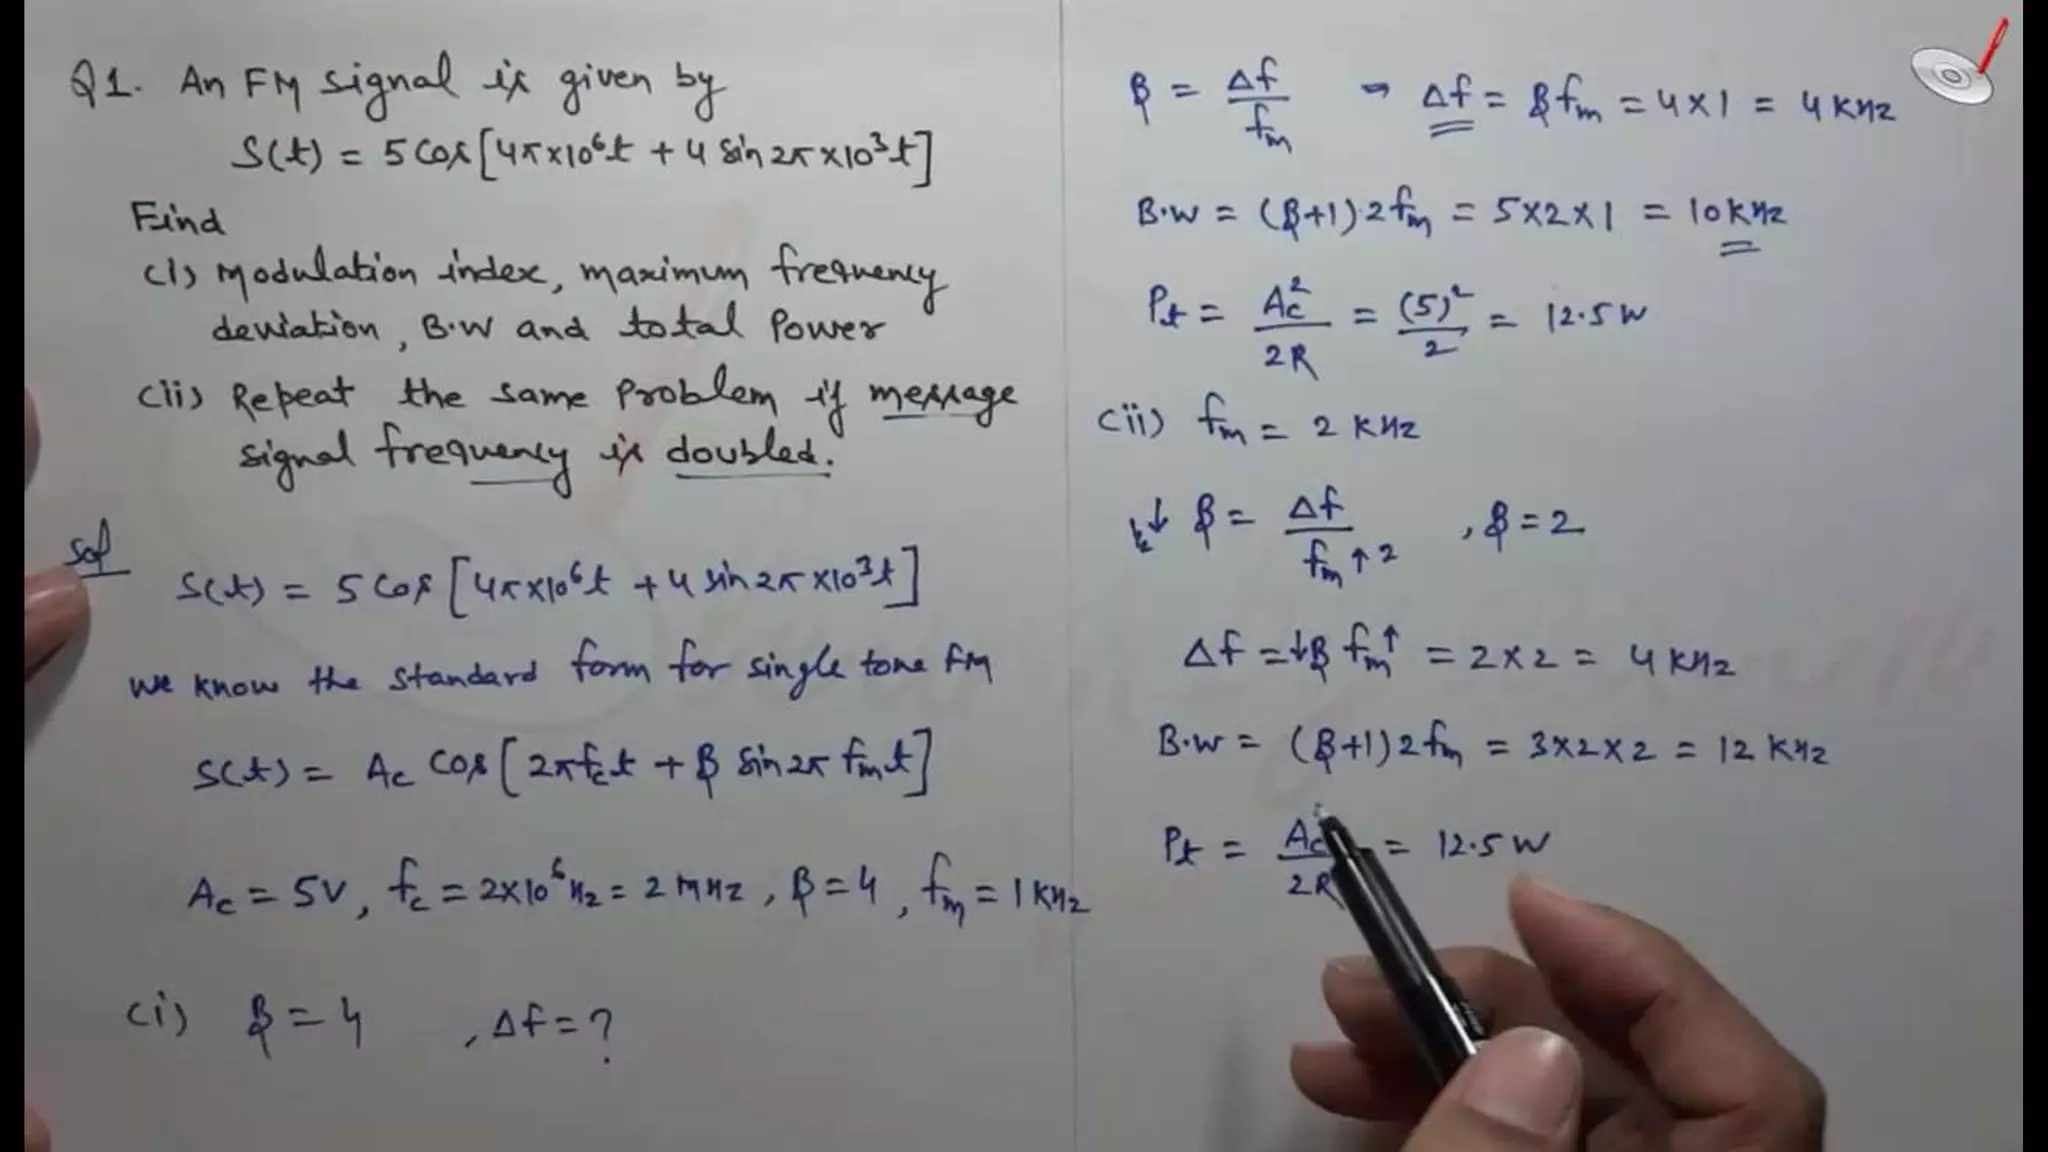 Q1. An FM signal is given by
S(t) = 5 cos[4π×10⁶t + 4 sin 2π×10³t]
Find
(i) Modulation index, maximum frequency
deviation, B.W and total Power
(ii) Repeat the same Problem if message
signal frequency is doubled.
Sol
S(t) = 5 cos[4π×10⁶t + 4 sin 2π×10³t]
We know the standard form for single tone FM
S(t) = Ac cos[2πfct + β sin 2π fmt]
Ac = 5V, fc = 2×10⁶Hz = 2 MHz, β = 4, fm = 1 KHz
(i) β = 4 , Δf = ?
β = Δf/fm → Δf = βfm = 4×1 = 4 KHz
B.W = (β+1).2fm = 5×2×1 = 10 KHz
Pt = Ac²/2R = (5)²/2 = 12.5 W
(ii) fm = 2 KHz
½↓ β = Δf/fm↑2 , β = 2
Δf = ↓β fm↑ = 2×2 = 4 KHz
B.W = (β+1)2fm = 3×2×2 = 12 KHz
Pt = Ac/2R = 12.5 W